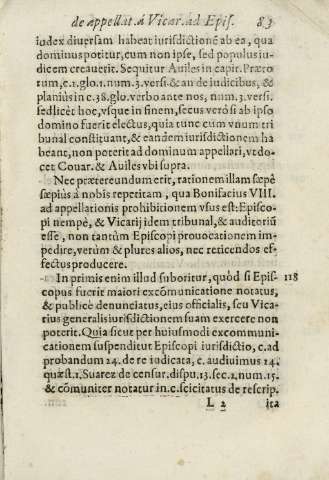 de appellat. á Vicar. ad Epis. 83
iudex diuersam habeat iurisdictionē ab ea, qua
dominus potitur, cum non ipse, sed populus iu-
dicem creauerit. Sequitur Auiles in capit. Præto
rum, c. 1. glo. 1. num. 3. versi. & an de iudicibus, &
planiùs in c. 38. glo. verbo ante nos, num. 3. versi.
sed licet hoc, vsque in finem, secus verò si ab ipso
domino fuerit electus, quia tunc cum vnum tri
bunal constituant, & eandem iurisdictionem ha
beant, non poterit ad dominum appellari, vt do-
cet Couar. & Auiles vbi supra.
Nec prætereundum erit, rationem illam sæpè
sæpiùs à nobis repetitam, qua Bonifacius VIII.
ad appellationis prohibitionem vsus est: Episco-
pi nempè, & Vicarij idem tribunal, & auditoriū
esse, non tantùm Episcopi prouocationem im-
pedire, verùm & plures alios, nec reticendos ef-
fectus producere.
In primis enim illud suboritur, quòd si Epis- 118
copus fuerit maiori excōmunicatione notatus,
& publicè denunciatus, eius officialis, seu Vica-
rius generalis iurisdictionem suam exercere non
poterit. Quia sicut per huiusmodi excommuni-
cationem suspenditur Episcopi iurisdictio, c. ad
probandum 24. de re iudicata, c. audiuimus 24.
quæst. 1. Suarez de censur. dispu. 13. sec. 2. num. 15.
& cōmuniter notatur in c. sciscitatus de rescrip.
L 2 ita